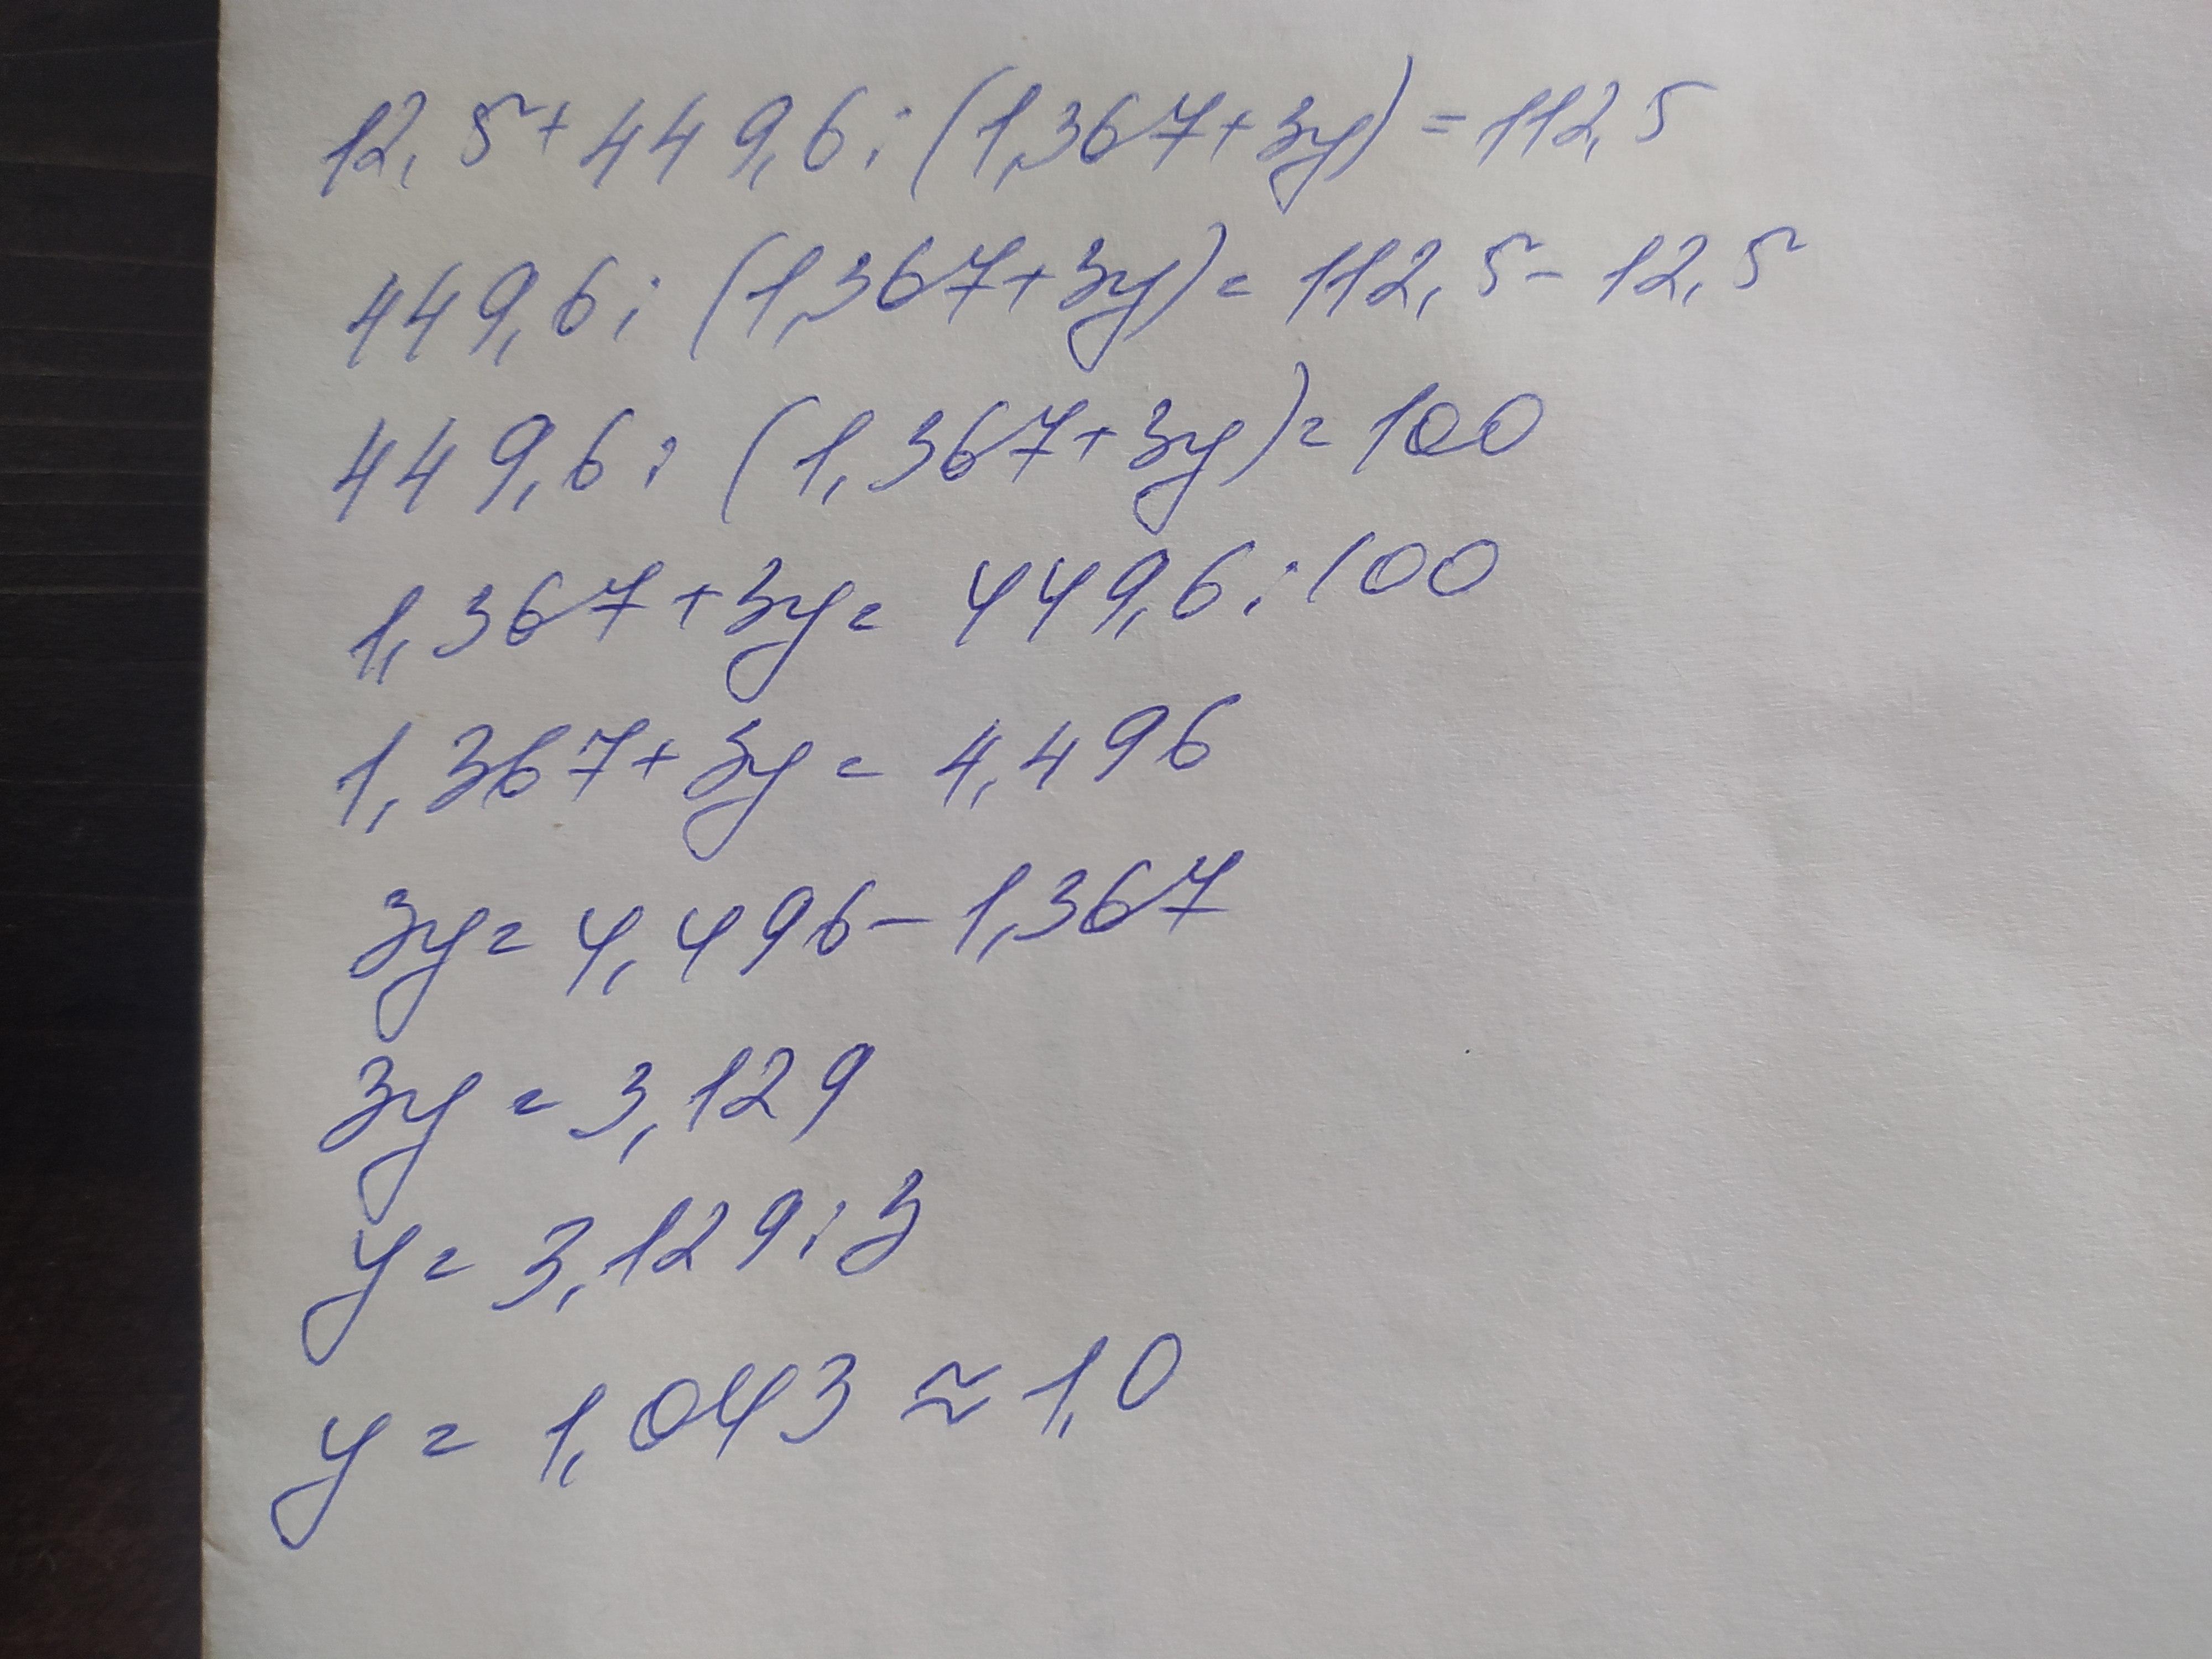 12,5+449,6:(1,367+3y)=112,5
449,6:(1,367+3y)=112,5-12,5
449,6:(1,367+3y)=100
1,367+3y=449,6:100
1,367+3y=4,496
3y=4,496-1,367
3y=3,129
y=3,129:3
y=1,043≈1,0